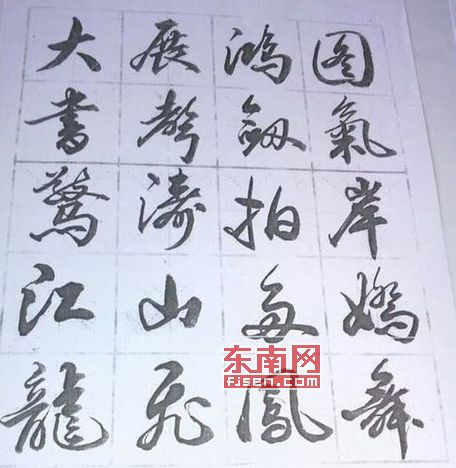 大展鴻图
書聲劔氣
驚濤拍岸
江山多嬌
龍飛鳳舞
东南网
fjsen.com